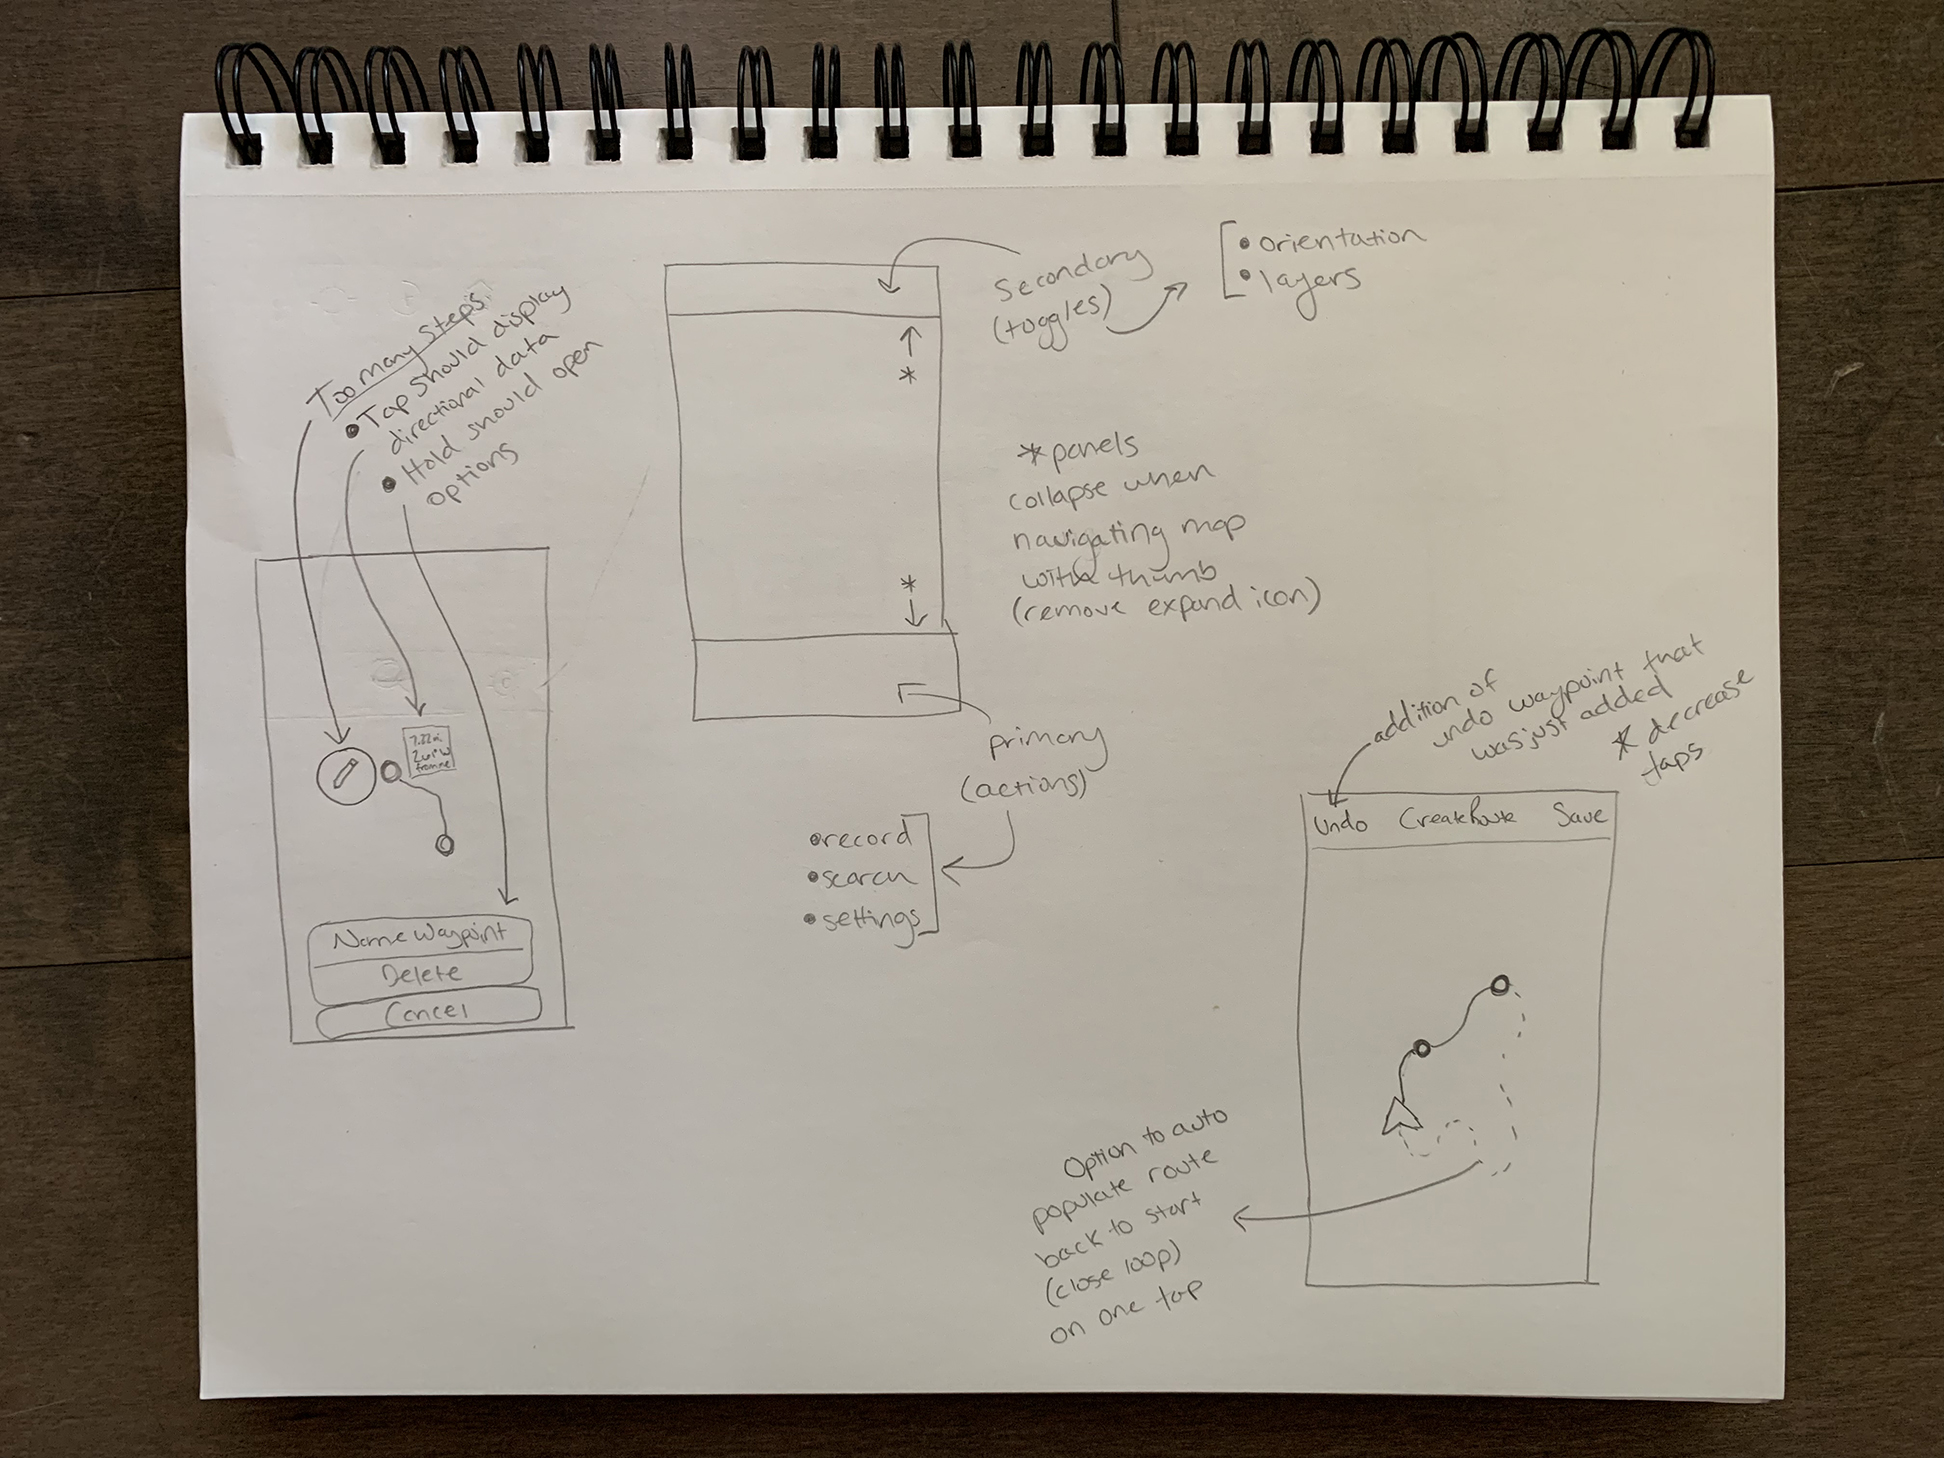 Too many steps
• Tap should display
directional data
• Hold should open
options
7.22mi
from me
Name Waypoint
Delete
Cancel
Secondary
(toggles)
• orientation
• layers
*
* panels
collapse when
navigating map
with thumb
(remove expand icon)
*
primary
(actions)
• record
• search
• settings
addition of
undo waypoint that
was just added
* decrease
taps
Undo Create Route Save
Option to auto
populate route
back to start
(close loop)
on one tap